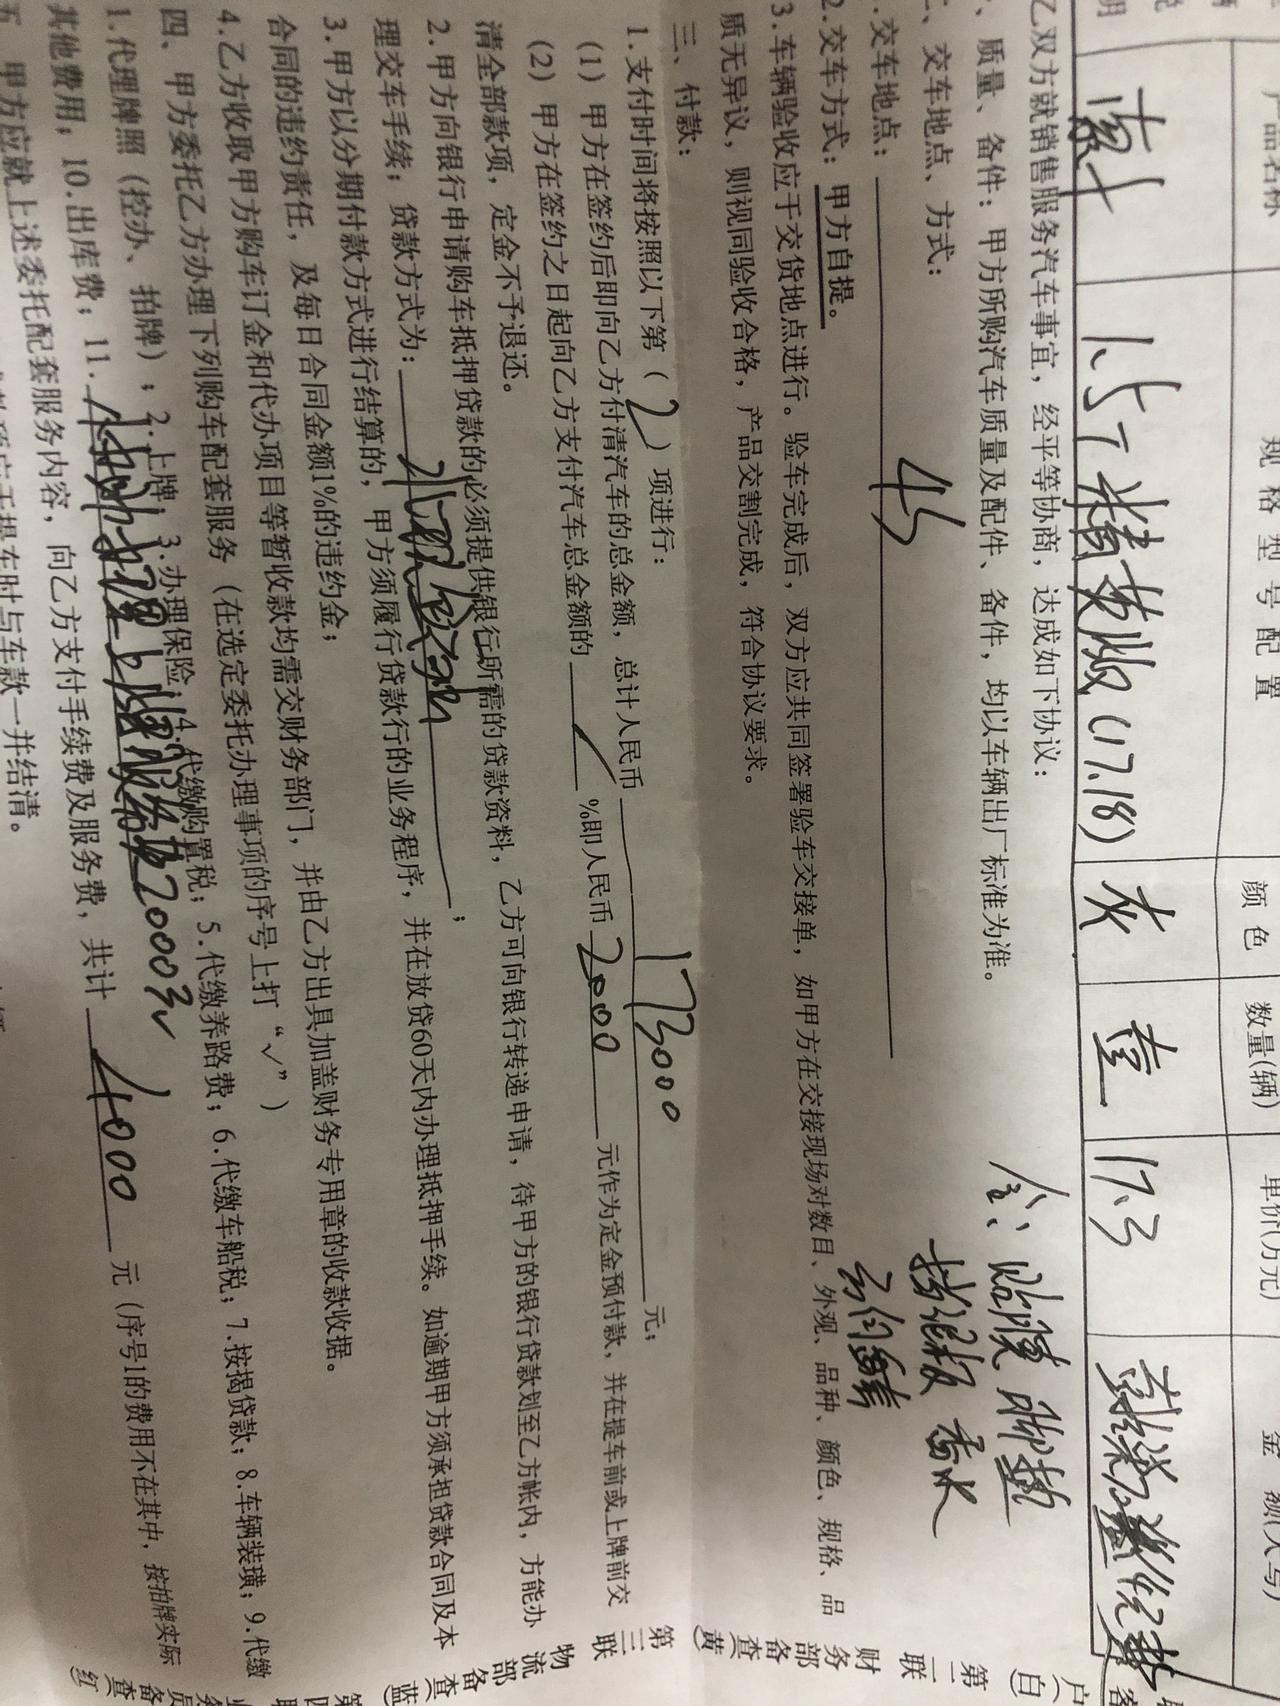 产品名称 规格型号配置 颜色 数量(辆) 单价(万元) 金额(大写)
1.5T精英版(17.18) 灰 壹 17.3
乙双方就销售服务汽车事宜，经平等协商，达成如下协议：
、质量、备件：甲方所购汽车质量及配件、备件，均以车辆出厂标准为准。
、交车地点、方式：
含：贴膜 脚垫
.交车地点： 4S
挡泥板 香水
2.交车方式：甲方自提。
3.车辆验收应于交货地点进行。验车完成后，双方应共同签署验车交接单，如甲方在交接现场对数目、外观、品种、颜色、规格、品
质无异议，则视同验收合格，产品交割完成，符合协议要求。
三、付款：
1.支付时间将按照以下第（2）项进行：
(1) 甲方在签约后即向乙方付清汽车的总金额，总计人民币 173000 元；
(2) 甲方在签约之日起向乙方支付汽车总金额的 / %即人民币 2000 元作为定金预付款，并在提车前或上牌前交
清全部款项，定金不予退还。
2.甲方向银行申请购车抵押贷款的必须提供银行所需的贷款资料，乙方可向银行转递申请，待甲方的银行贷款划至乙方帐内，方能办
理交车手续；贷款方式为： ；
3.甲方以分期付款方式进行结算的，甲方须履行贷款行的业务程序，并在放贷60天内办理抵押手续。如逾期甲方须承担贷款合同及本
合同的违约责任，及每日合同金额1%的违约金；
4.乙方收取甲方购车订金和代办项目等暂收款均需交财务部门，并由乙方出具加盖财务专用章的收款收据。
四、甲方委托乙方办理下列购车配套服务（在选定委托办理事项的序号上打“√”）
1.代理牌照（控办、拍牌）；2.上牌；3.办理保险；4.代缴购置税；5.代缴养路费；6.代缴车船税；7.按揭贷款；8.车辆装璜；9.代缴
其他费用；10.出库费；11. 2000元
向乙方支付手续费及服务费，共计 1000 元（序号1的费用不在其中，按拍牌实际
五、甲方应就上述委托配套服务内容，
于提车时与车款一并结清。
第二联 财务部备查（黄）
第三联 物流部备查（蓝）